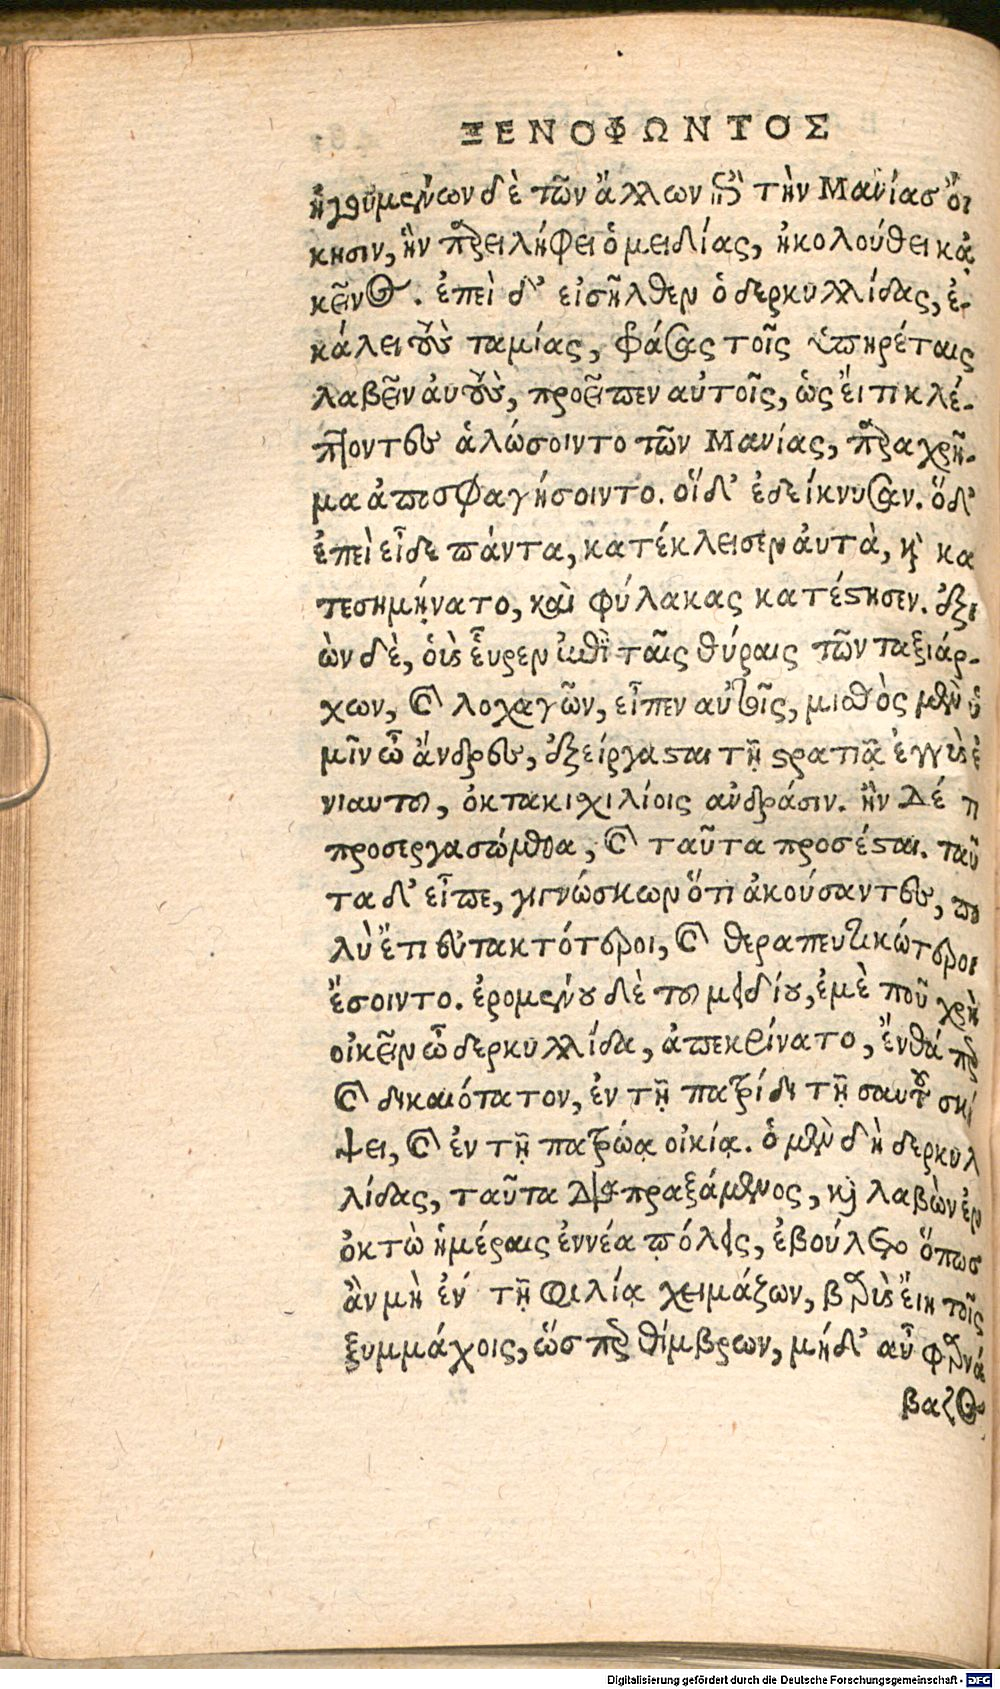 ΞΕΝΟΦΩΝΤΟΣ
ἡγουμένων δὲ τῶν ἄλλων ἐπὶ τὴν Μανίας οἴ
κησιν, ἣν παρειλήφει ὁ μειδίας, ἠκολούθει κἀ
κεῖνος. ἐπεὶ δ' εἰσῆλθεν ὁ δερκυλλίδας, ἐ-
κάλει τοὺς ταμίας, φράσας τοῖς ὑπηρέταις
λαβεῖν αὐτοὺς, προεῖπεν αὐτοῖς, ὡς εἴ τι κλέ-
πτοντες ἁλώσοιντο τῶν Μανίας, παραχρῆ-
μα ἀποσφαγήσοιντο. οἵδ' ἐδείκνυσαν. ὅδ'
ἐπεὶ εἶδε πάντα, κατέκλεισεν ἀυτὰ, καὶ κα
τεσημῄνατο, καὶ φύλακας κατέστησεν. ἐξι
ὼν δὲ, οὓς εὗρεν ἐπὶ ταῖς θύραις τῶν ταξιάρ-
χων, καὶ λοχαγῶν, εἶπεν αὐτοῖς, μισθὸς μὲν ὑ
μῖν ὦ ἄνδρες, ἐξείργασται τῇ στρατιᾷ ἐγγὺς ἐ
νιαυτοῦ, ὀκτακιχιλίοις ανδράσιν. ἢν δέ τι
προσεργασώμεθα, καὶ ταῦτα προσέσται. ταῦ
τα δ' εἶπε, γιγνώσκων ὅτι ἀκούσαντες, πο
λὺ ἔτι εὐτακτότεροι, καὶ θεραπευτικώτεροι
ἔσοιντο. ἐρομένου δὲ τοῦ μειδίου, ἐμὲ ποῦ χρὴ
οἰκεῖν ὦ δερκυλλίδα, ἀπεκρίνατο, ἔνθά περ
καὶ δικαιότατον, ἐν τῇ πατρίδι τῇ σαυτοῦ σκή
ψει, καὶ ἐν τῇ πατρώᾳ οἰκίᾳ. ὁ μὲν δὴ δερκυλ
λίδας, ταῦτα διαπραξάμενος, καὶ λαβὼν ἐν
ὀκτὼ ἡμέραις ἐννέα πόλεις, ἐβούλετο ὅπως
ἂν μὴ ἐν τῇ φιλίᾳ χειμάζων, βαρὺς εἴη τοῖς
ξυμμάχοις, ὥσπερ θίμβρων, μήδ' αὖ φαρνά
βαζος